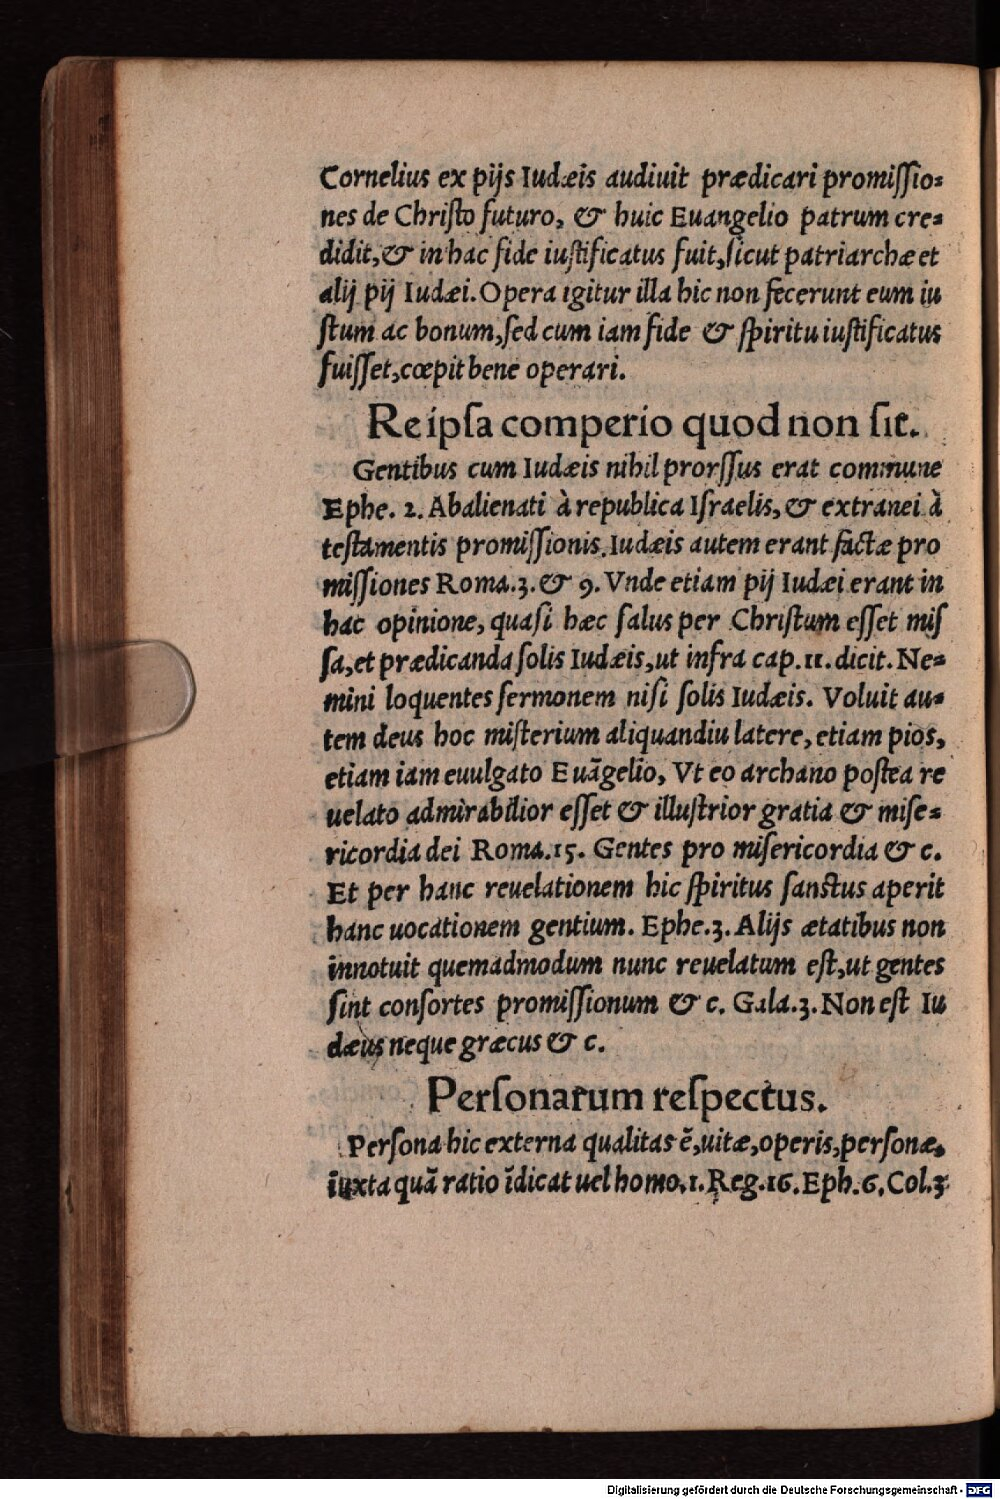 Cornelius ex pijs Iudæis audiuit prædicari promiſſio=
nes de Chriſto futuro, & huic Euangelio patrum cre=
didit, & in hac fide iuſtificatus fuit, ſicut patriarchæ et
alij pij Iudæi. Opera igitur illa hic non fecerunt eum iu
ſtum ac bonum, ſed cum iam fide & ſpiritu iuſtificatus
fuiſſet, cœpit bene operari.
Reipſa comperio quod non ſit.
Gentibus cum Iudæis nihil prorſſus erat commune
Ephe. 2. Abalienati à republica Iſraelis, & extranei à
teſtamentis promiſſionis. Iudæis autem erant factæ pro
miſſiones Roma. 3. & 9. Vnde etiam pij Iudæi erant in
hac opinione, quaſi hæc ſalus per Chriſtum eſſet miſ
ſa, et prædicanda ſolis Iudæis, ut infra cap. 11. dicit. Ne=
mini loquentes ſermonem niſi ſolis Iudæis. Voluit au=
tem deus hoc miſterium aliquandiu latere, etiam pios,
etiam iam euulgato Euãgelio, Vt eo archano poſtea re
uelato admirabilior eſſet & illuſtrior gratia & miſe=
ricordia dei Roma. 15. Gentes pro miſericordia & c.
Et per hanc reuelationem hic ſpiritus ſanctus aperit
hanc uocationem gentium. Ephe. 3. Alijs ætatibus non
innotuit quemadmodum nunc reuelatum eſt, ut gentes
ſint conſortes promiſſionum & c. Gala. 3. Non eſt Iu
dæus neque græcus & c.
Perſonarum reſpectus.
Perſona hic externa qualitas ẽ, uitæ, operis, perſonæ,
iuxta quã ratio ĩdicat uel homo. 1. Reg. 16. Eph. 6. Col. 3
Digitalisierung gefördert durch die Deutsche Forschungsgemeinschaft - DFG